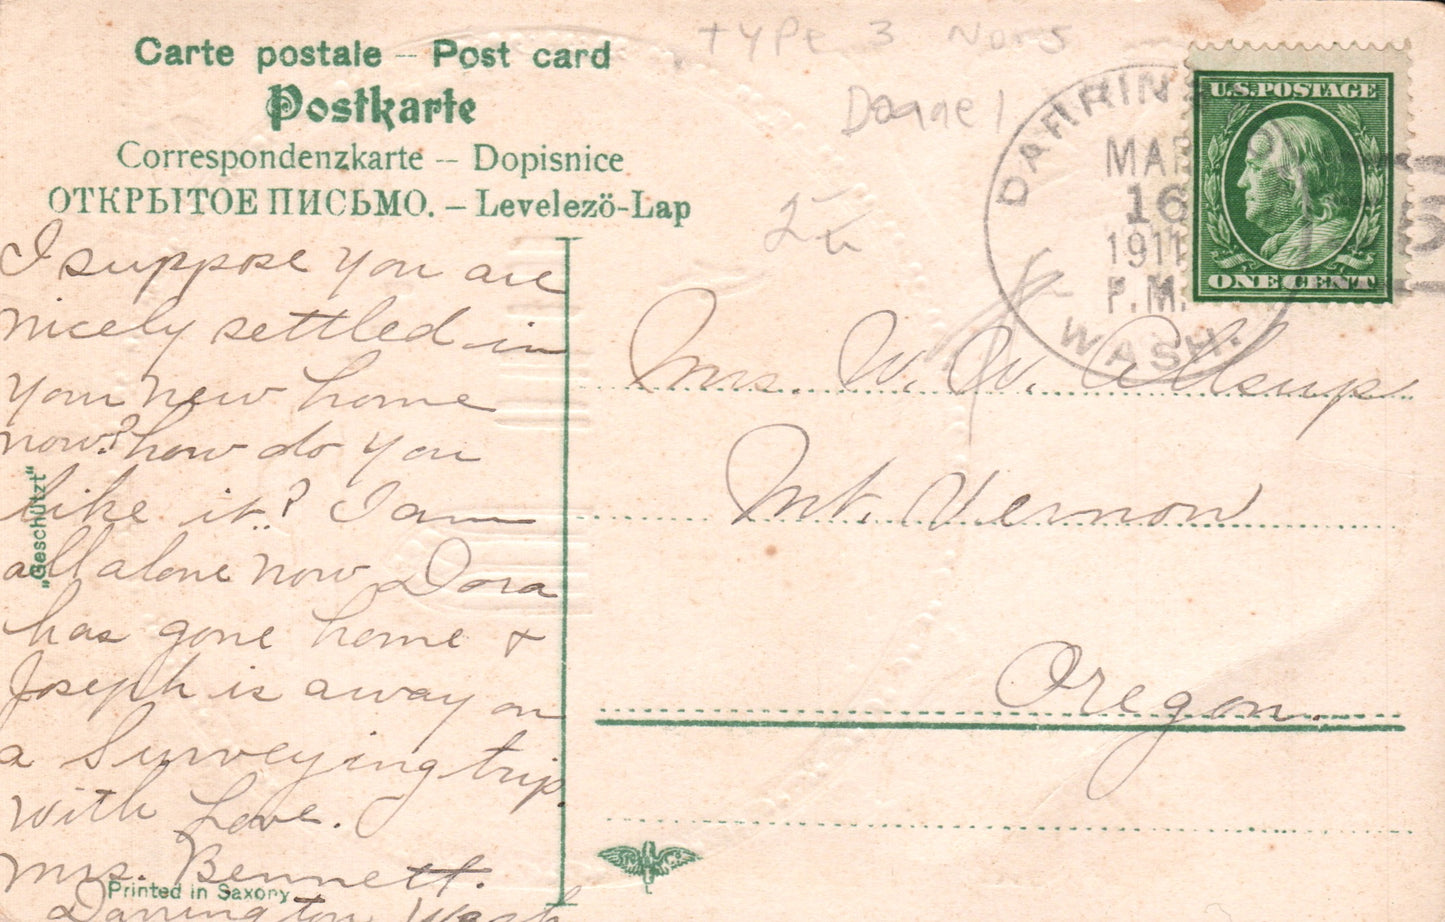 type 3 Nov 5
Carte postale -- Post card
Postkarte
Correspondenzkarte -- Dopisnice
ОТКРЫТОЕ ПИСЬМО. -- Levelezö-Lap
DARRIN
MAR
16
1911
P.M.
WASH.
U.S. POSTAGE
ONE CENT
5
I suppose you are
nicely settled in
your new home
now? how do you
like it? I am
all alone now Dora
has gone home &
Joseph is away on
a Surveying trip.
with Love.
Mrs. Bennett.
Darrington Wash
Mrs. W. W. Allsup
Mt. Vernon
Oregon.
„Geschützt“
Printed in Saxony